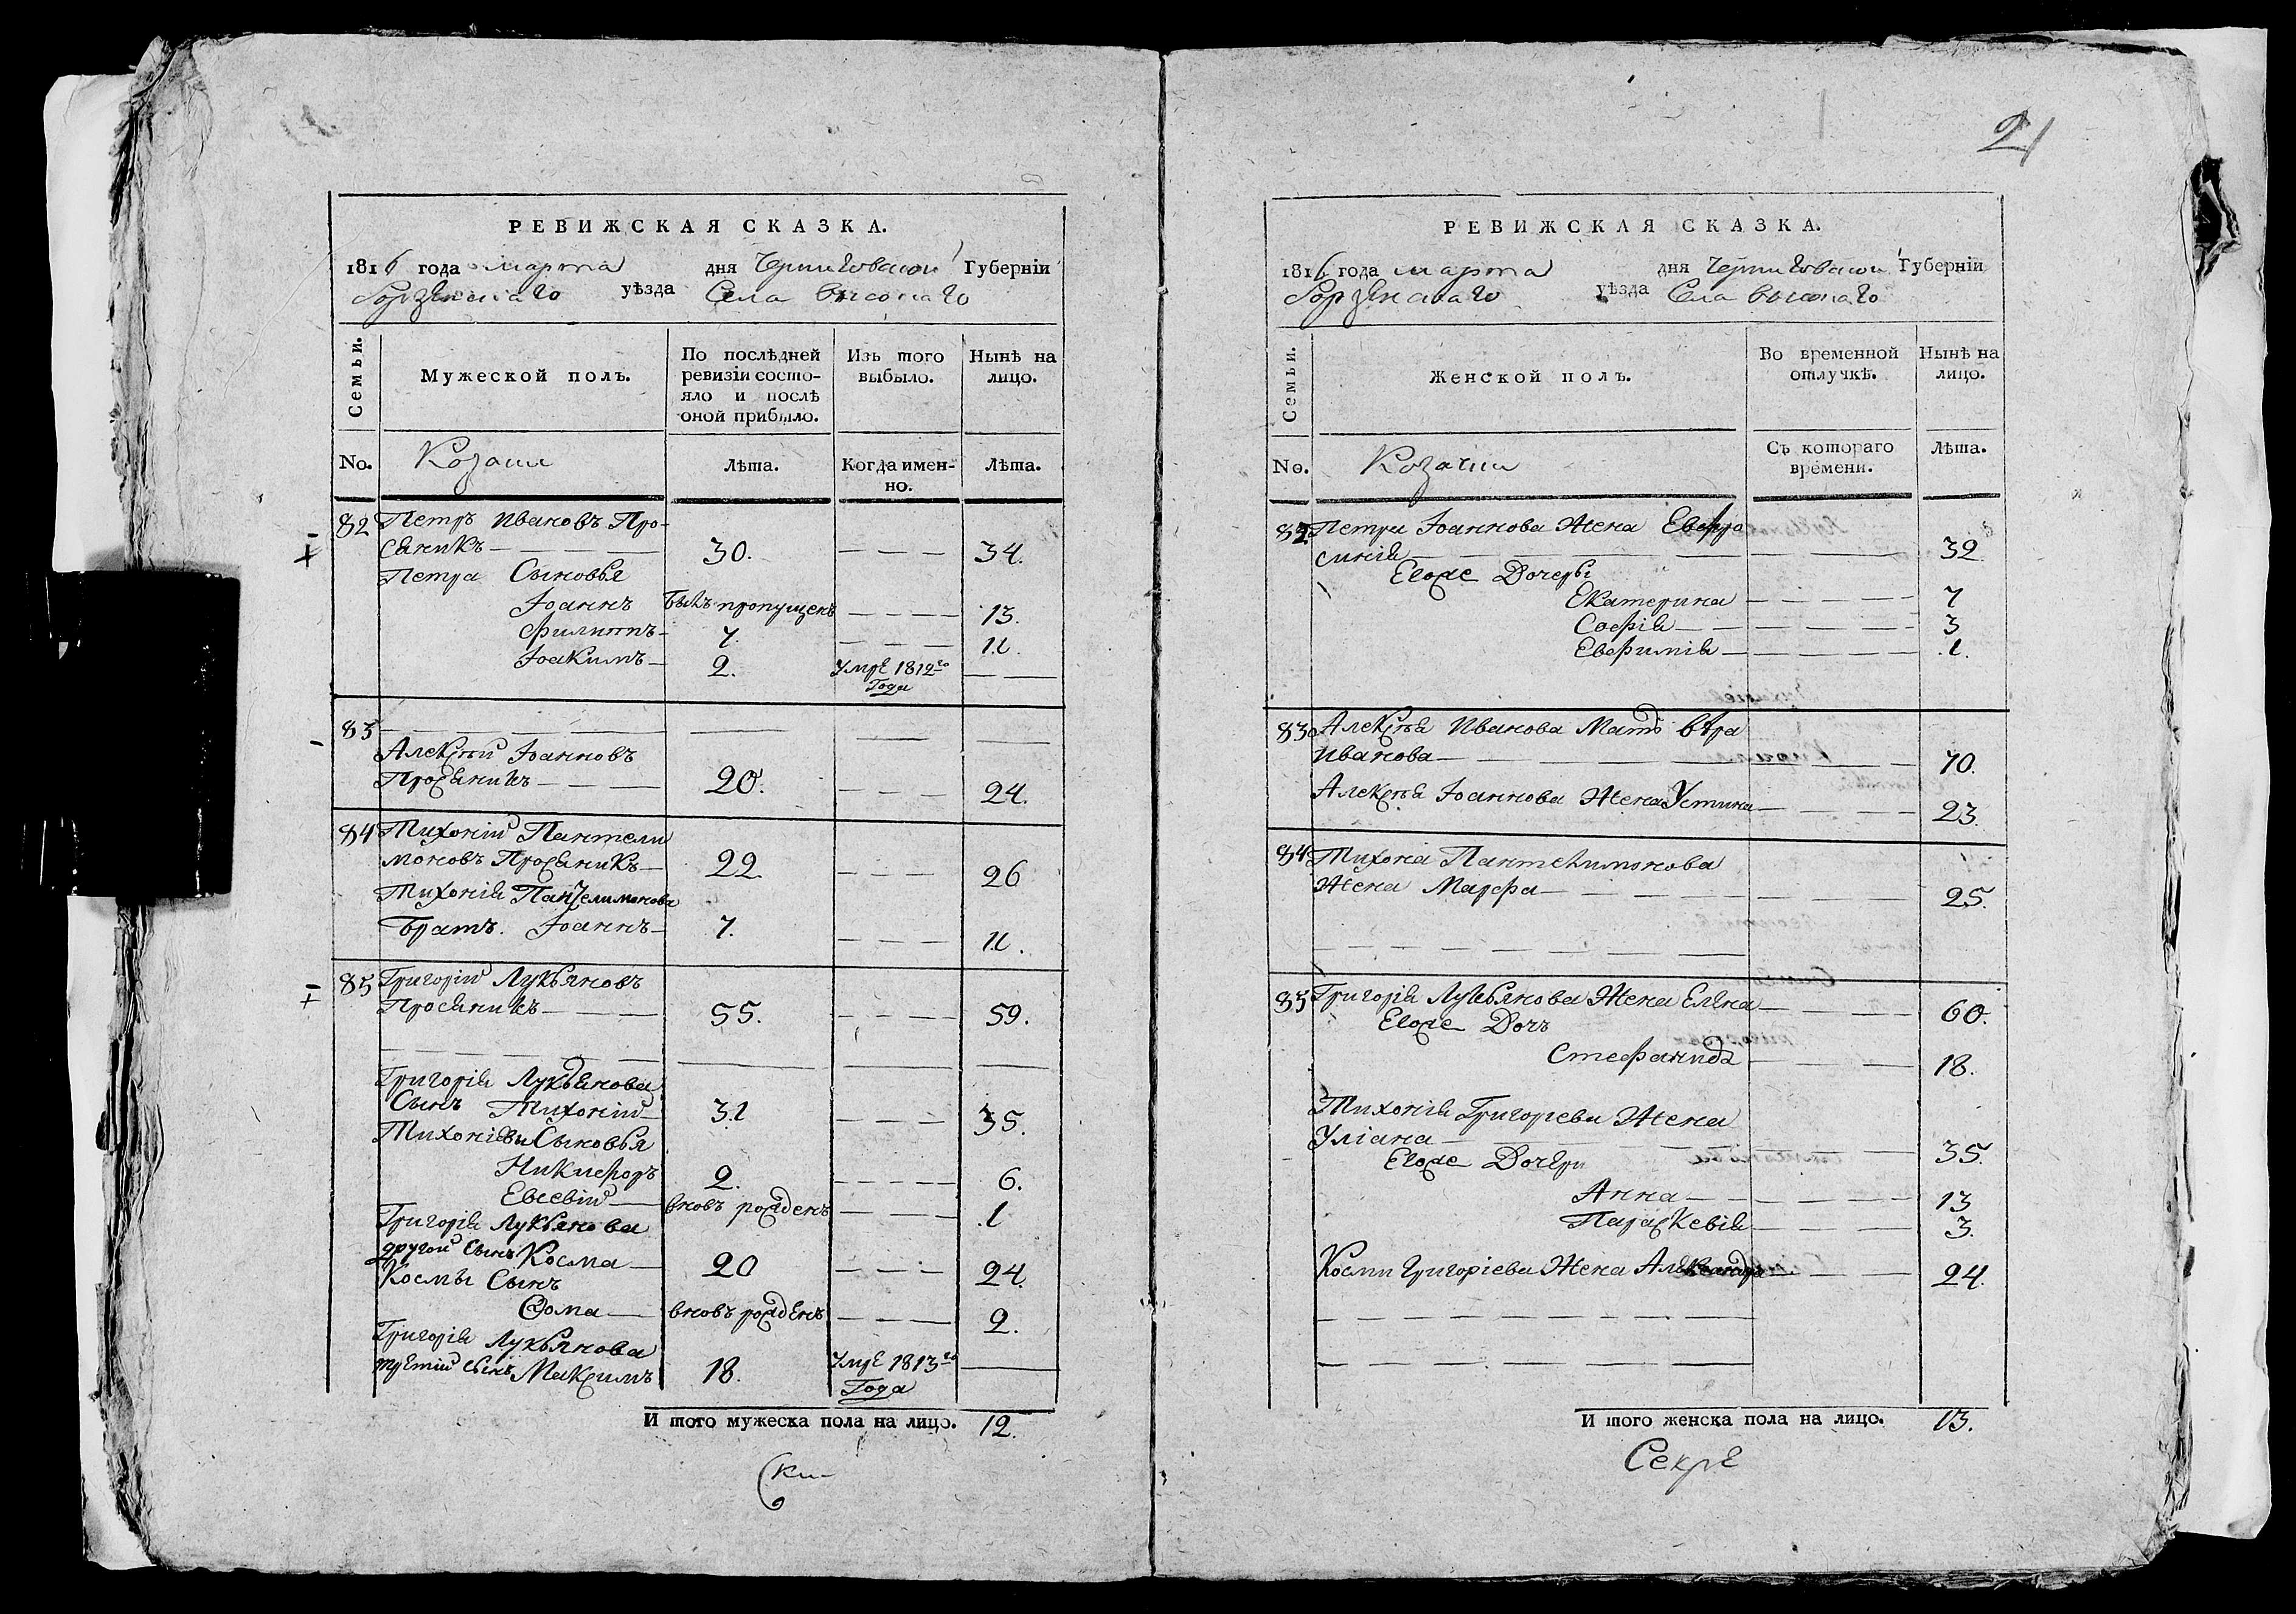 РЕВИЖСКАЯ СКАЗКА.
1816 года марта дня Черниговской Губерніи
Борзенскаго уѣзда Села Высокаго
Семьи.
Мужеской полъ.
По послѣдней
ревизіи состо-
яло и послѣ
оной прибыло.
Изъ того
выбыло.
Нынѣ на
лицо.
No. Козаки Лѣта. Когда имен-
но. Лѣта.
82 Петръ Ивановъ Про-
сяникъ 30. 34.
Петра Сыновья
Іоаннъ Былъ пропущенъ 13.
Филиппъ 7. 11.
Іоакимъ 2. Умре 1812го
Года
83
Алексѣй Іоанновъ
Просяникъ 20. 24.
84 Тихоній Пантели
моновъ Просяникъ 22. 26
Тихонія Пантелимонова
Братъ. Іоаннъ 7. 11.
85 Григорій Лукьяновъ
Просяникъ 55. 59.
Григорія Лукьянова
Сынъ Тихоній 31 35.
Тихоніевы Сыновья
Никифоръ 2. 6.
Евсевій вновь рожденъ 1
Григорія Лукьянова
другой Сынъ Косма 20 24.
Космы Сынъ
Фома вновь рожденъ 2.
Григорія Лукьянова
третій сынъ Максимъ 18. Умре 1813го
Года
И того мужеска пола на лицо. 12.
21
РЕВИЖСКАЯ СКАЗКА.
1816 года марта дня Черниговской Губерніи
Борзенскаго уѣзда Села Высокаго
Семьи.
Женской полъ.
Во временной
отлучкѣ.
Нынѣ на
лицо.
No. Козачки Съ котораго
времени. Лѣта.
82 Петра Іоаннова Жена Евфро
синія 32
Егоже Дочеры
Екатерина 7
Софія 3
Евфимія 1.
83 Алексѣя Иванова Мать Вѣра
Иванова 70.
Алексѣя Іоаннова Жена Устина 23.
84 Тихонія Пантелимонова
Жена Марфа 25.
85 Григорія Лукьянова Жена Елена 60.
Егоже Дочь
Стефанида 18.
Тихонія Григорьева Жена
Уліана 35.
Егоже Дочери
Анна 13
Параскевія 3.
Космы Григоріева Жена Александра 24.
И того женска пола на лицо. 13.
Секре